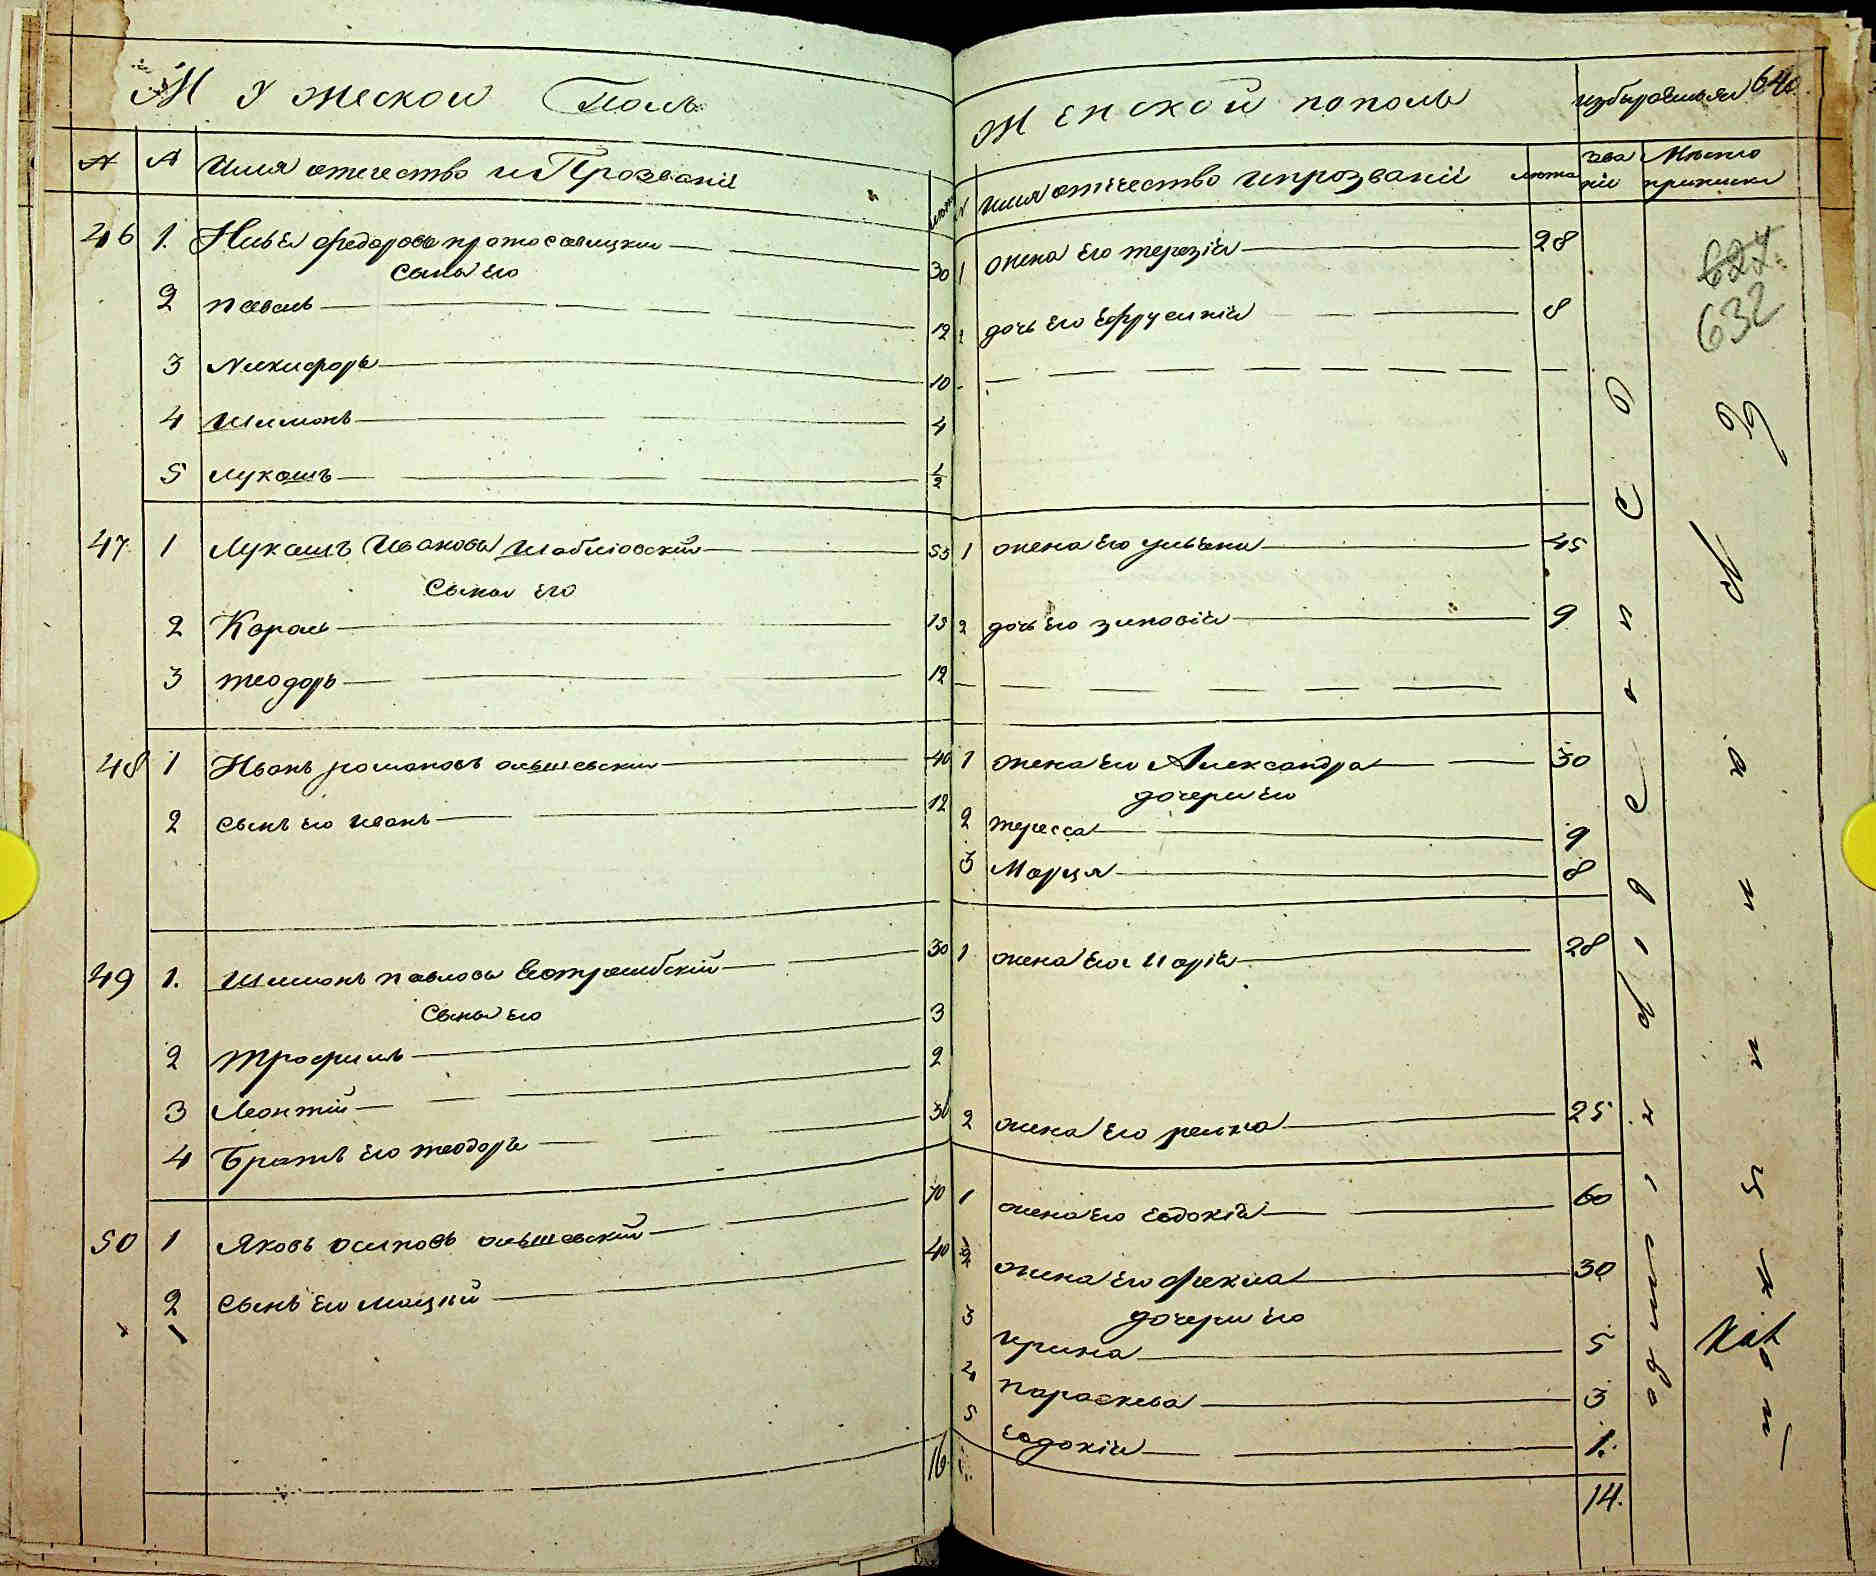 Мужеской Полъ
№ № Имя отечество и Прозваніе лета
46 1. федоровъ протосавицкии 30
сыны его
2 павелъ 12
3 Никифоръ 10
4 Шимонъ 4
5 Лукашъ 1/2
47 1 Лукашъ Ивановъ Шабловскій 55
Сыны его
2 Кароль 13
3 теодоръ 12
48 1 Иванъ романовъ ольшевскии 40
2 сынъ его иванъ 12
49 1. Шимонъ павловъ 30
Сыны его
2 трофимъ 3
3 Леонтій 2
4 Братъ его теодоръ 30
50 1 Яковъ осиповъ ольшевскій 70
2 сынъ его мацкій 40
1
16
Женской пополъ
640
№ имя отечество ипрозваніе лета Зва ніе Место приписки
1 жена его терезія 28
624
632
2 дочь его Ефрузинія 8
1 жена его ульяна 45
2 дочь его зиновія 9
1 жена его Александра 30
дочери его
2 тересса 9
3 Марця 8
1 жена его Марія 28
2 жена его 25
1 жена его евдокія 60
2 жена его фекла 30
дочери его
3 Ирина 5
4 параскева 3
5 евдокія 1.
14.